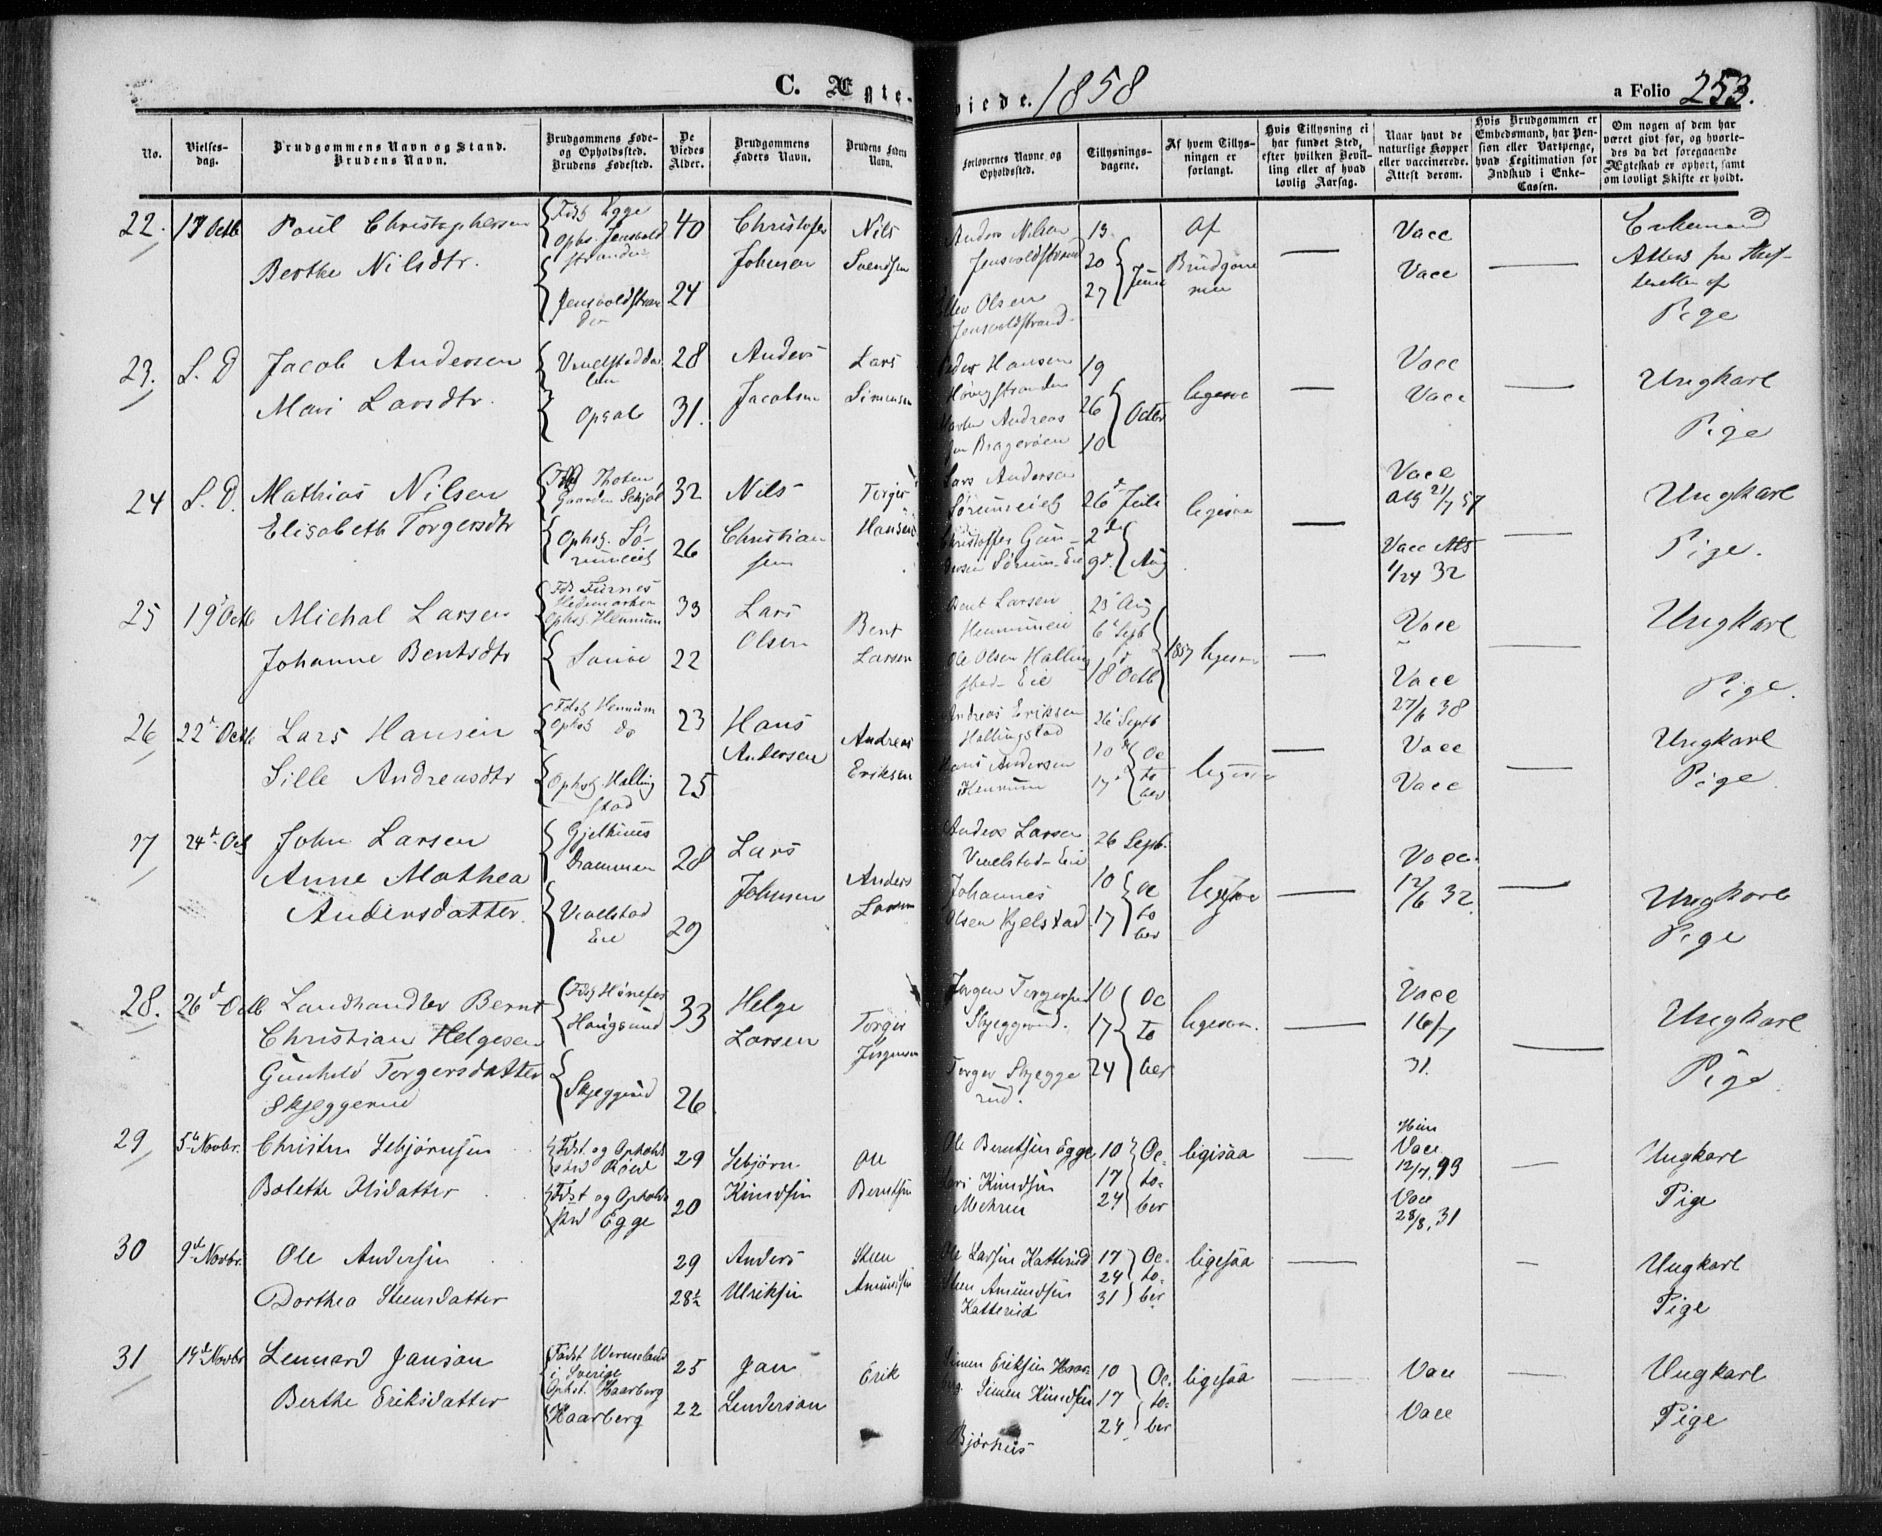 C. Ægteviede. 1858
a Folio 253.
No.
Vielses-
dag.
Brudgommens Navn og Stand.
Brudens Navn.
Brudgommens Føde-
og Opholdssted.
Brudens Fødested.
De
Viedes
Alder.
Brudgommens
Faders Navn.
Brudens Faders
Navn.
Forlovernes Navne og
Opholdssted.
Tillysnings-
dagene.
Af hvem Tillys-
ningen er
forlangt.
Hvis Tillysning ei
har fundet Sted,
efter hvilken Bevil-
ling eller af hvad
lovlig Aarsag.
Naar havt de
naturlige Kopper
eller vaccinerede.
Attest derom.
Hvis Brudgommen er
Embedsmand, har Pen-
sion eller Vartpenge,
hvad Legitimation for
Indskud i Enke-
Cassen.
Om nogen af dem har
været givt før, og hvorle-
des da det foregaaende
Ægteskab er ophørt, samt
om lovligt Skifte er holdt.
22. 17 Octb Poul Christophersen
Berthe Nilsdtr.
Fdst Egge
Ophs. Jensvold
stranden
Jensvoldstran
den
40
24
Christofer
Johnsen
Nils
Svendsen
Anders Nilsen
Jensvoldstrand
Olsen
Jensvoldstrand
13.
20
27
Juni
Af
Brudgom
men
Vacc
Vacc
Enkemand
Attest fra Skif-
teretten af
Pige
23. S. D Jacob Andersen
Mari Larsdtr.
Opsal
28
31.
Anders
Jacobsen
Lars
Simensen
Peder Hansen
Andreas
Bragerøen
19
26
10
Octbr
ligesaa
Vacc
Vacc
Ungkarl
Pige
24 S. D. Mathias Nilsen
Elisabeth Torgersdtr
Thoten
Gaarden
Ophst. Sø-
rumeiet
32
26
Nils
Christian
sen
Torger
Hansen
Lars Andersen
Sørumeiet
Christoffer Gun-
dersen Sørum-Eie
26 d Juli
2 den
9 d.
Aug
ligesaa
Vacc
Att 21/7 57
Vacc Att
1/24 32
Ungkarl
Pige.
25 19 Octb Michal Larsen
Johanne Bentsdtr
Fds Furnes
Hedemarken
Ophst Hennum
33
22
Lars
Olsen
Bent
Larsen
Bent Larsen
Hennumeie
Ole Olsen Halling
stad-Eie
23 Aug
6 Sept
18 Octb
1857
ligesaa
Vacc
Vacc
27/6 38
Ungkarl
Pige.
26 22 Octb Lars Hansen
Sille Andreasdtr
Fdst Hennum
Ophst do
Ophst. Halling
stad
23
25
Hans
Andersen
Andreas
Eriksen
Andreas Eriksen
Hallingstad
Hans Andersen
Hennum
26 Septb
10
17
Oc
to
ber
ligesaa
Vacc
Vacc
Ungkarl
Pige
27 24 Oct John Larsen
Anne Mathea
Andersdatter.
Gjethuus
Drammen
Vivelstad
Eie
28
29
Lars
Johnsen
Anders
Larsen
Anders Larsen
Vivelstad-Eie
Johannes
Olsen Kjelstad
26 Septb.
10
17
Oc
to
ber
ligesaa
Vacc.
12/6 32.
Ungkarl
Pige
28. 26 d Octb Landhandler Bernt
Christian Helgesen
Gunhild Torgersdatter
Skjeggerud
Fdst Hønefos
Hougsund
Skjeggerud
33
26
Helge
Larsen
Torger
Jørgensen
Jørgen Torgersen
Skjeggerud.
Torger Skjegge
rud.
10
17
24
Oc
to
ber
ligesaa.
Vacc
16/7
31.
Ungkarl
Pige
29 5 d Novbr. Christen Sebjørnsen
Bolethe Olsdatter
Fdst. og Opholds
sted
Fdst og Opholds
sted Egge
29
20
Sebjørn
Knudsen
Ole
Berntsen
Ole Berntsen Egge
Knudsen
Mehren
10
17
24
Oc-
to-
ber
ligesaa
Vacc
Vacc
28/8. 31
Ungkarl
Pige
30 9 d Novbr. Ole Andersen
Dorthea Steensdatter
29
28½
Anders
Ulriksen
Steen
Amundsen
Ole Larsen Katterud
Steen Amundsen
Katterud
17
24
31
Oc-
to-
ber
ligesaa
Ungkarl
Pige
31 14 d Novbr Lennard Janson
Berthe Eriksdatter
Fødst Wermeland
i Sverige
Ophst. Haarberg
Haarberg
25
22
Jan
Lenderson
Erik
Simen Eriksen Haar-
berg. Simen Knudsen
Bjørkeis
10
17
24
Oc-
to-
ber
ligesaa
Vacc
Vacc
Ungkarl
Pige